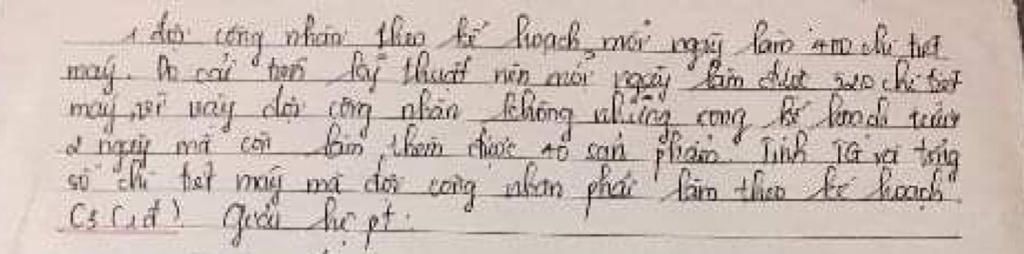 1 đội công nhân theo kế hoạch mỗi ngày làm 400 chi tiết
máy. Do cải tiến kỹ thuật nên mỗi ngày làm được chi tiết
máy, vì vậy đội công nhân không những xong kế hoạch trước
2 ngày mà còn làm thêm được 40 sản phẩm. Tính TG và tổng
số chi tiết máy mà đội công nhân phải làm theo kế hoạch.
C3 (1đ) Giải hệ pt: